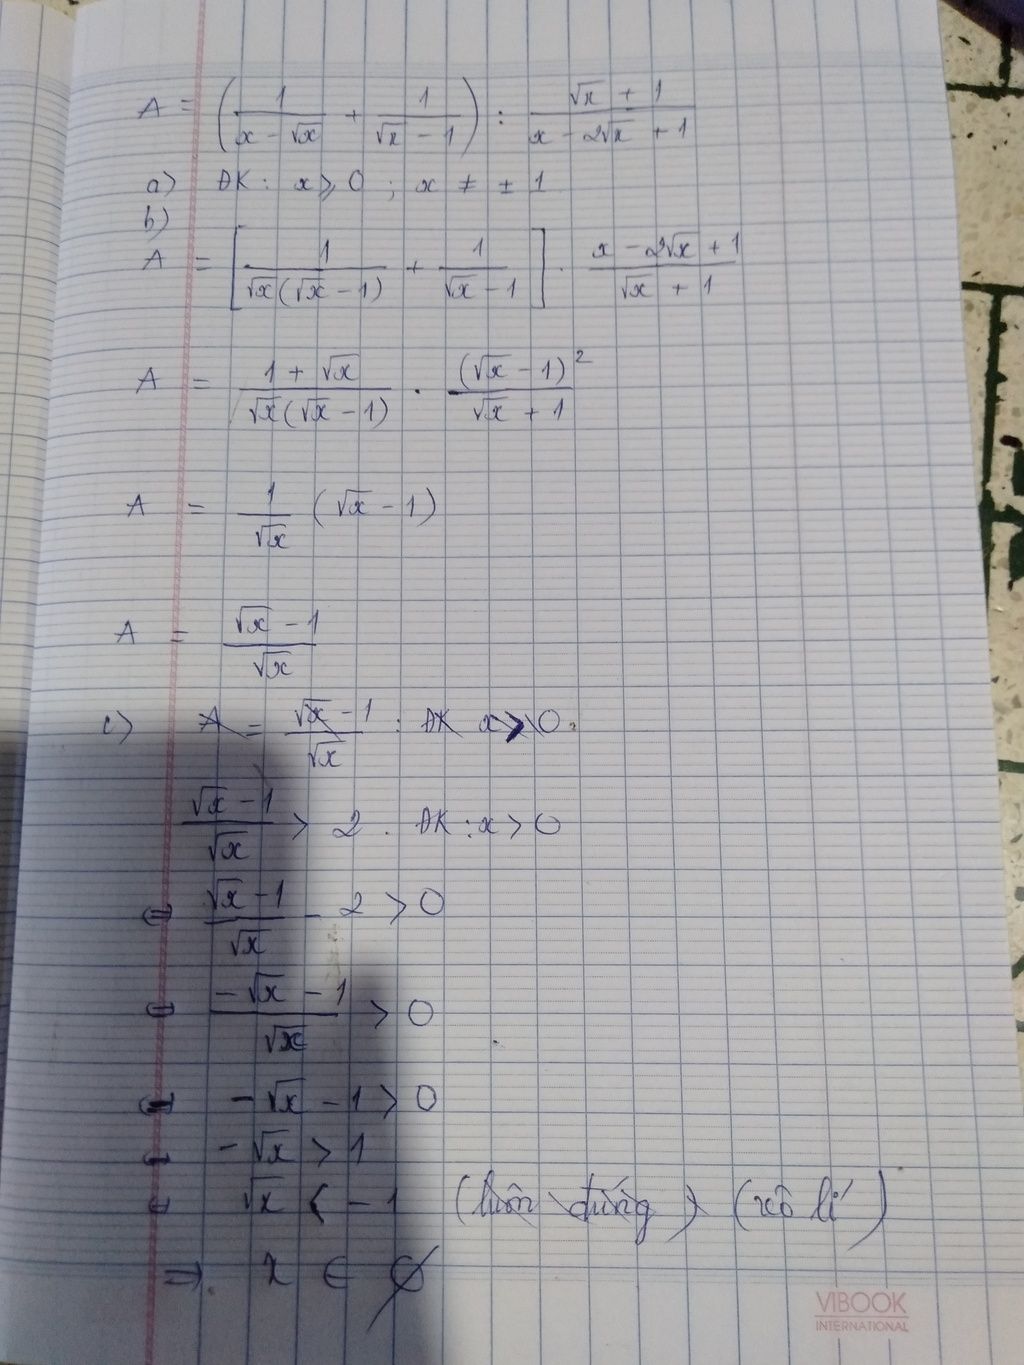 A = ( 1/(x - √x) + 1/(√x - 1) ) : (√x + 1)/(x - 2√x + 1)
a) ĐK : x ⩾ 0 ; x ≠ ± 1
b)
A = [ 1/(√x(√x - 1)) + 1/(√x - 1) ] . (x - 2√x + 1)/(√x + 1)
A = (1 + √x)/(√x(√x - 1)) . (√x - 1)²/(√x + 1)
A = 1/√x (√x - 1)
A = (√x - 1)/√x
c) A = (√x - 1)/√x : ĐK x > 0
(√x - 1)/√x > 2 . ĐK : x > 0
⇔ (√x - 1)/√x - 2 > 0
⇔ (-√x - 1)/√x > 0
⇔ -√x - 1 > 0
⇔ -√x > 1
⇔ √x < -1 (luôn đúng) (vô lí)
⇒ x ∈ ∅
VIBOOK
INTERNATIONAL